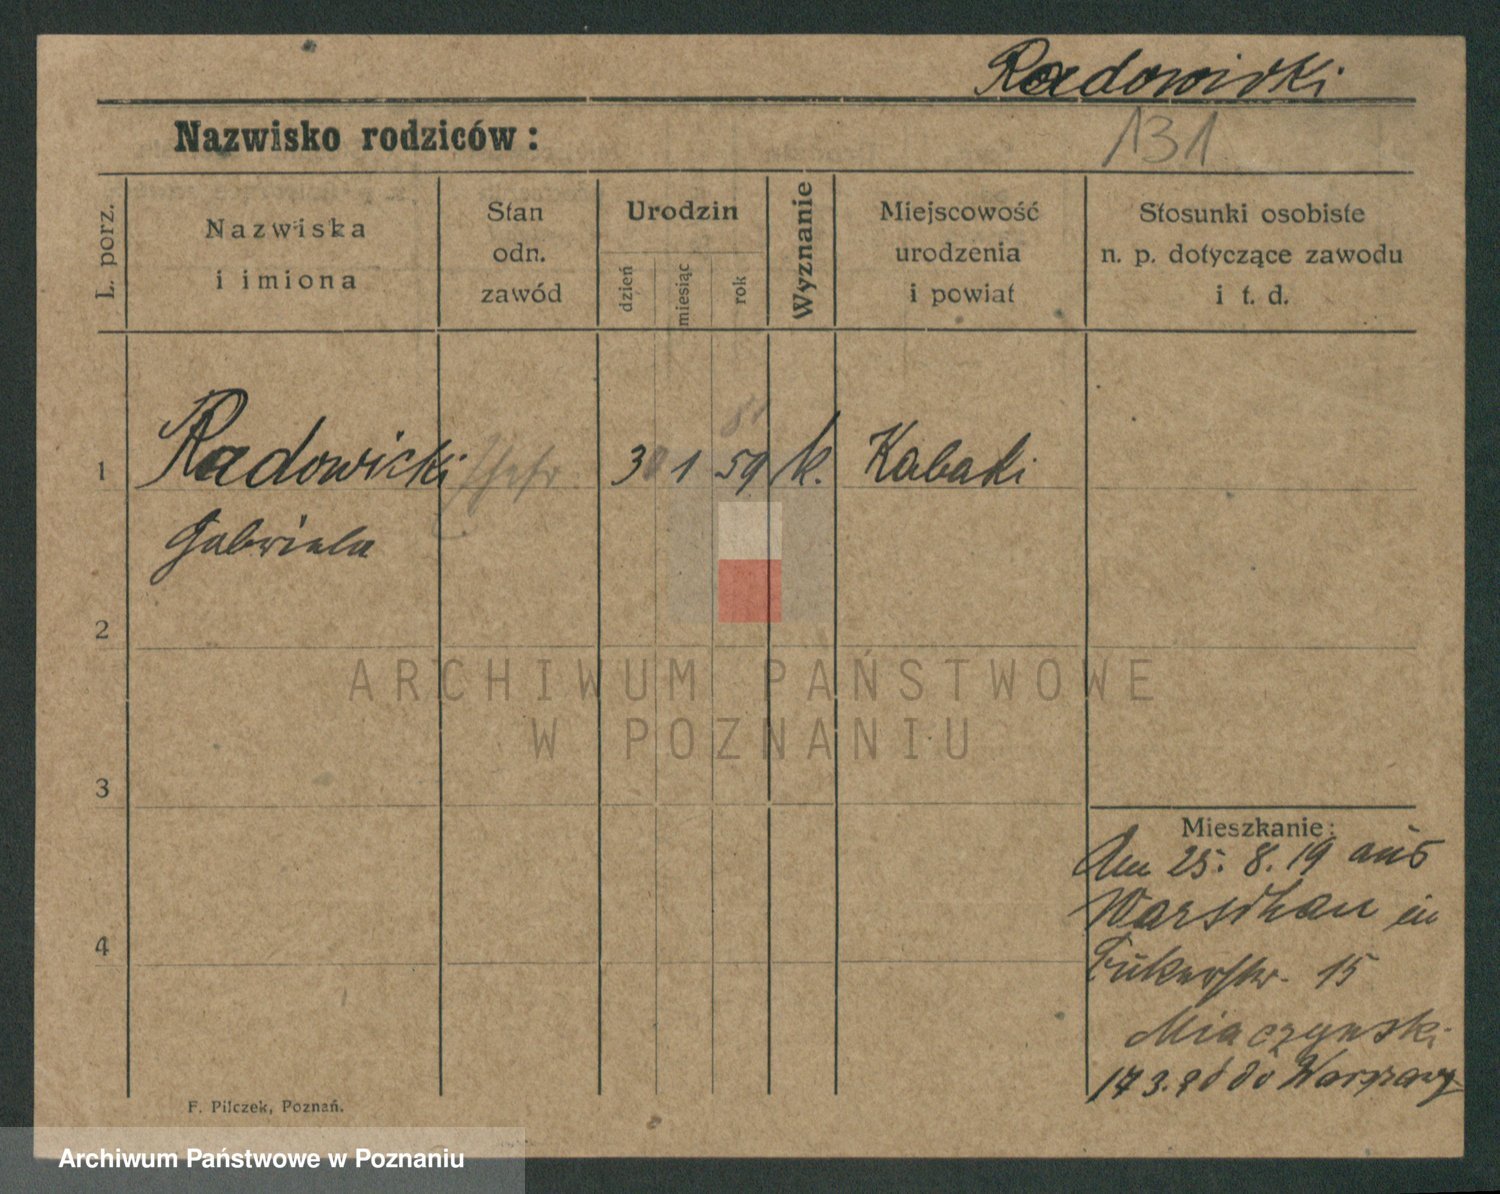 Radowicki
Nazwisko rodziców:
131
L. porz.
Nazwiska
i imiona
Stan
odn.
zawód
Urodzin
dzień
miesiąc
rok
Wyznanie
Miejscowość
urodzenia
i powiat
Stosunki osobiste
n. p. dotyczące zawodu
i t. d.
81
1 Radowicki 30 1 59 k. Kabaki
Gabriela
2
ARCHIWUM PAŃSTWOWE
W POZNANIU
3
Mieszkanie:
Am 25. 8. 19 aus
Warschau in
15
4
Miaczynski
do Warszawy
F. Pilczek, Poznań.
Archiwum Państwowe w Poznaniu